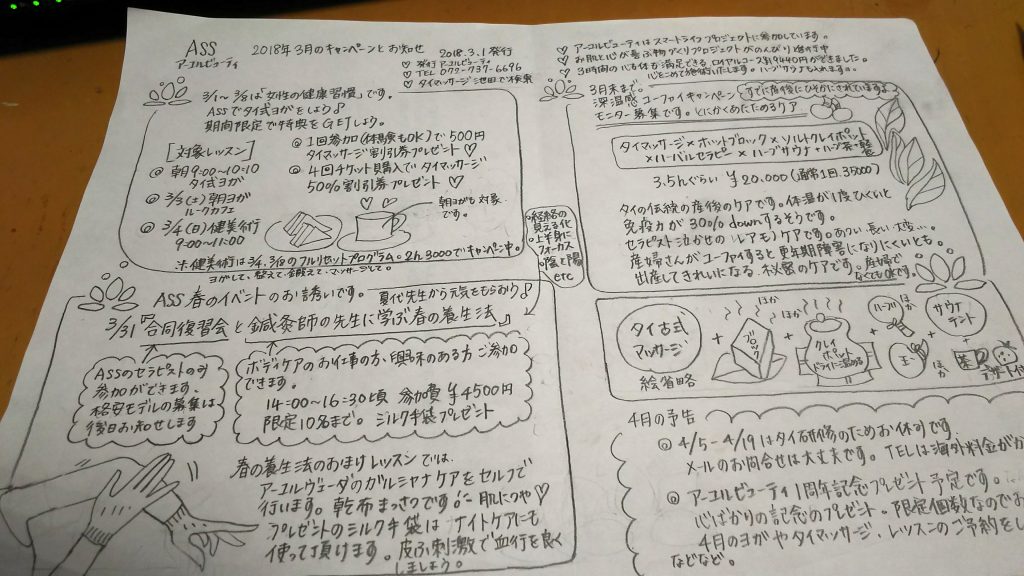 ASS
アーユルビューティ
2018年3月のキャンペーンとお知せ
2018.3.1発行
♡ 発行 アーユルビューティ
♡ TEL 072-737-6696
♡ タイマッサージ池田で検索
3/1~3/8は"女性の健康習慣"です。
ASSでタイ式ヨガをしよう♪
期間限定で特典をGETしよう。
[対象レッスン]
@ 朝9:00~10:10
タイ式ヨガ
@ 3/3(土)朝ヨガ
ルークカフェ
@ 3/4(日)健美術行
9:00~11:00
@ 1回参加(体験もOK)で500円
タイマッサージ割引券プレゼント♡
@ 4回チケット購入でタイマッサージ
50%割引券プレゼント ♡
朝ヨガも対象
です。
※健美術は3/4, 3/10のフルリセットプログラム。2h 3000でキャンペーン中。
ヨガして、整えて、鍛えて、マッサージして。
経絡の
見える化
上半身に
フォーカス
陰と陽
etc
ASS 春のイベントのお誘いです。
夏代先生から元気をもらおう♪
3/31『合同復習会と鍼灸師の先生に学ぶ春の養生法』
ASSのセラピストのみ
参加ができます。
格安モデルの募集は
後日お知せします
ボディケアのお仕事の方、興味のある方ご参加
できます。
14:00~16:30頃 参加費¥4500円
限定10名まで。シルク手袋プレゼント
春の養生法のおまけレッスンでは、
アーユルヴェーダのガルシャナケアをセルフで
行います。乾布まさつです 肌にツヤ♡
プレゼントのシルク手袋はナイトケアにも
使って頂けます。皮ふ刺激で血行を良く
しましょう。
♡ アーユルビューティはスマートライフプロジェクトに参加しています。
♡ お肌と心が喜ぶ物づくりプロジェクトがのんびり進行中
♡ 3時間の心も体も満足できるロイヤルコース割9440円ができました。
心をこめて施術いたします。ハーブサウナも入れますヨ。
3月末まで。
深温感ユーファイキャンペーン
すでに産後にひそかにされていますよ
モニター募集です。とにかくあたためるケア
タイマッサージ×ホットブロック×ソルトクレイポット
×ハーバルセラピー×ハーブサウナ+ハーブ茶+軽食
3.5hぐらい ¥20.000(通常1回.35000)
タイの伝統の産後のケアです。体温が1度ひくいと
免疫力が30% downするそうです。
セラピスト泣かせの(レアモノ)ケアです。あつい、長い、大変…
産婦さんがユーファイすると更年期障害になりにくいとも。
出産してきれいになる、秘密のケアです。
産婦で
なくてもOKです。
タイ古式
マッサージ
絵省略
+
ほか
ブロック
+
ほか
クレイ
ポット
ドライに温める
+
ハーブ
ほか
玉
サウナ
テント
ほか
+
茶
デザート付
4月の予告
@ 4/5-4/19はタイ研修のためお休みです。
メールのお問合せは大丈夫です。TELは海外料金がか
@ アーユルビューティ1周年記念プレゼント予定です。
心ばかりの記念のプレゼント。限定個数なのでお
4月のヨガやタイマッサージ、レッスンのご予約をし
などなど。